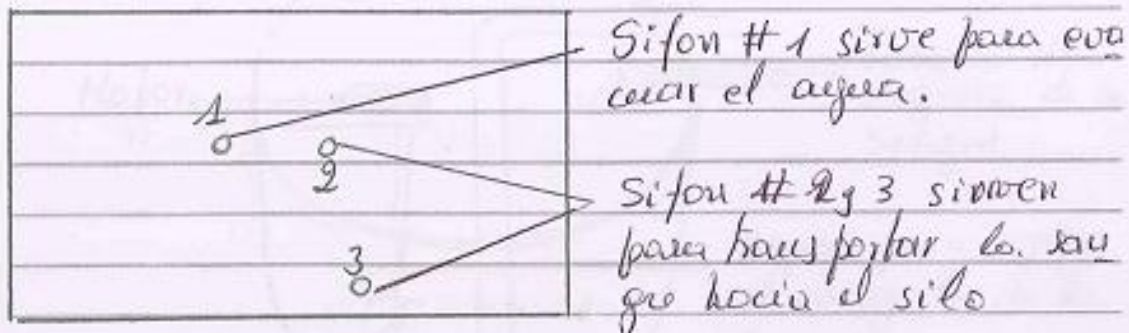 Sifon # 1 sirve para eva
cuar el agua.
1
2
Sifon # 2 y 3 sirven
para transportar la san
gre hacia el silo
3